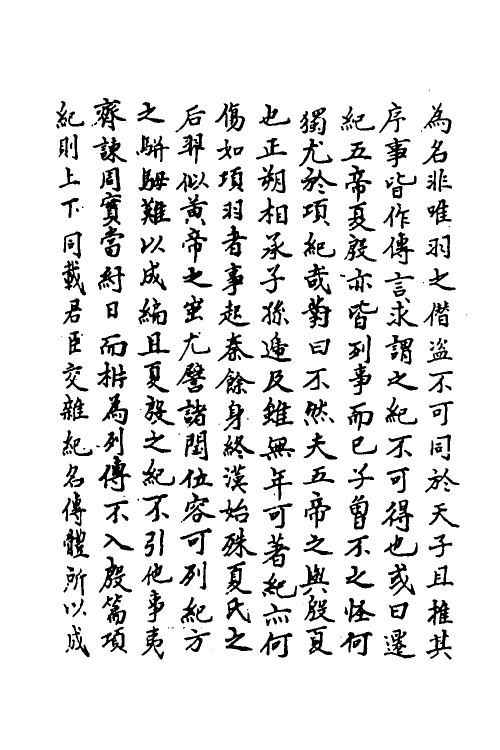 為名非唯羽之僣盜不可同於天子且推其
序事皆作傳言求謂之紀不可得也或曰遷
紀五帝夏殷亦皆列事而已子曾不之怪何
獨尤於項紀哉對曰不然夫五帝之與殷夏
也正朔相承子孫遞及雖無年可著紀亦何
傷如項羽者事起秦餘身終漢始殊夏氏之
后羿似黄帝之蚩尤譬諸閏位容可列紀方
之駢拇難以成編且夏殷之紀不引他事夷
齊諫周實當紂日而析為列傳不入殷篇項
紀則上下同載君臣交雜紀名傳體所以成